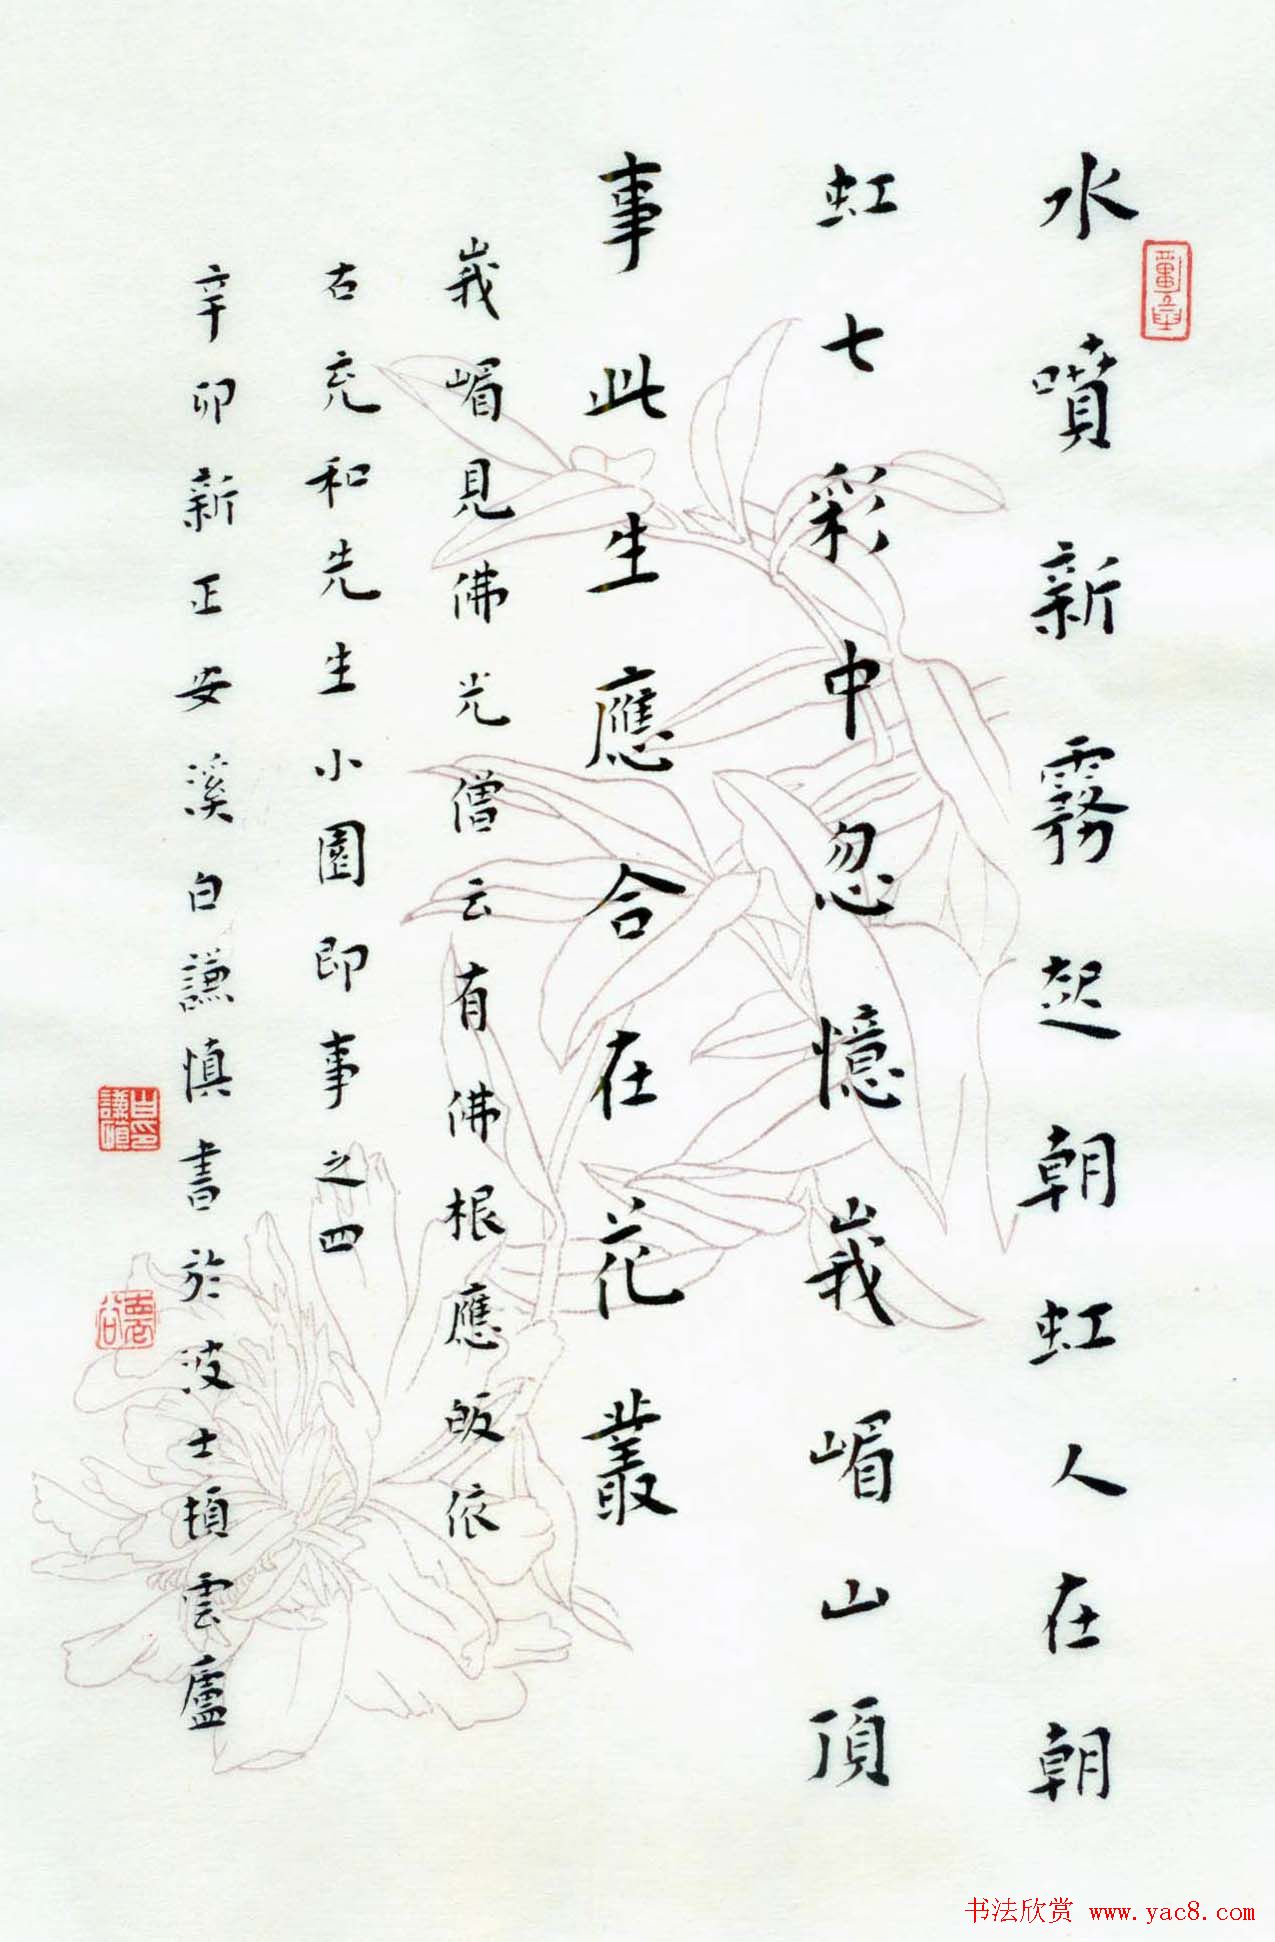 水噴新霧起朝虹人在朝
虹七彩中忽憶峩嵋山頂
事此生應合在花叢
峩嵋見佛光僧云有佛根應皈依
右充和先生小園即事之四
辛卯新正安溪白謙慎書於波士頓雲廬
白謙慎印
雲谷
书法欣赏 www.yac8.com